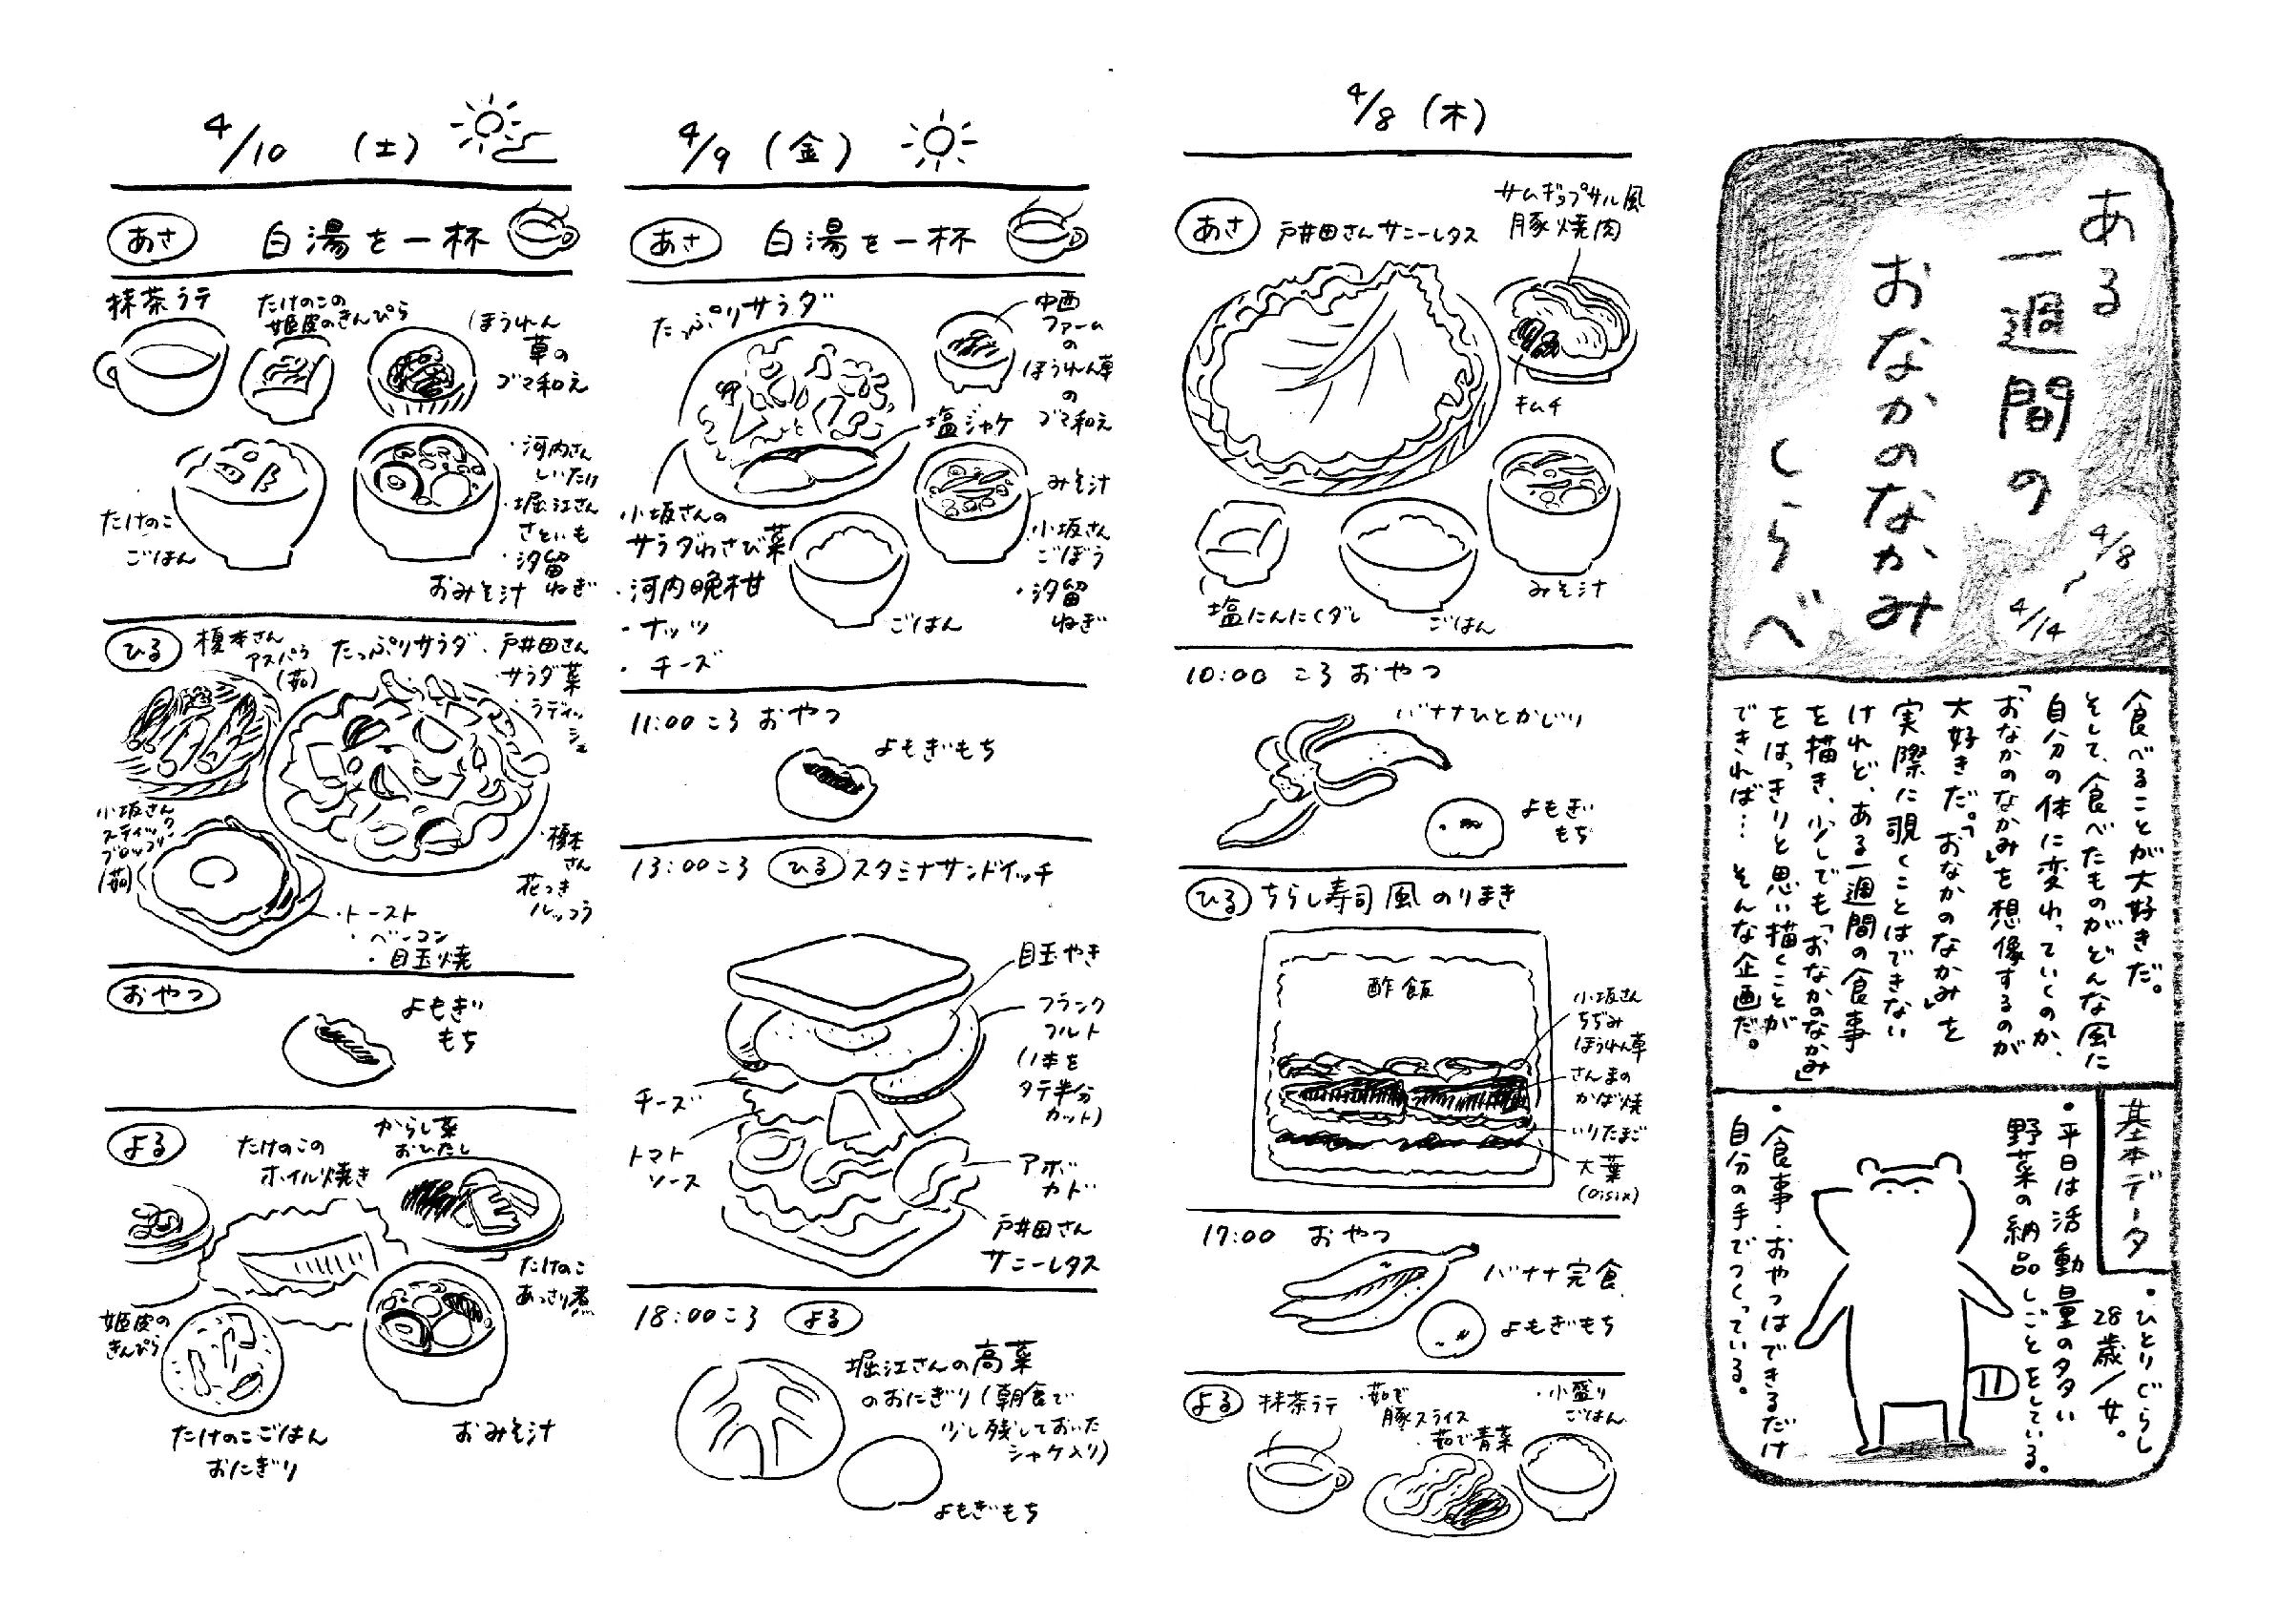 ある
一週間の
おなかのなかみ
しらべ
4/8
~
4/14
食べることが大好きだ。
そして、食べたものがどんな風に
自分の体に変わっていくのか、
「おなかのなかみ」を想像するのが
大好きだ。「おなかのなかみ」を
実際に覗くことはできない
けれど、ある一週間の食事
を描き、少しでも「おなかのなかみ」
をはっきりと思い描くことが
できれば… そんな企画だ。
基本データ
・ひとりぐらし
28歳/女。
・平日は活動量の多い
野菜の納品しごとをしている。
・食事・おやつはできるだけ
自分の手でつくっている。
4/8 (木)
あさ
戸井田さんサニーレタス
サムギョプサル風
豚焼肉
キムチ
塩にんにくダレ
ごはん
みそ汁
10:00 ころ おやつ
バナナひとかじり
よもぎ
もち
ひる ちらし寿司風 のりまき
酢飯
小坂さん
ちぢみ
ほうれん草
さんまの
かば焼
いりたまご
大葉
(Oisix)
17:00 おやつ
バナナ完食
よもぎもち
よる 抹茶ラテ
・茹で
豚スライス
・茹で青菜
・小盛り
ごはん
4/9 (金)
あさ 白湯を一杯
たっぷりサラダ
中西
ファーム
の
ほうれん草
の
ゴマ和え
塩ジャケ
みそ汁
小坂さん
ごぼう
・汐留
ねぎ
小坂さんの
サラダわさび菜
・河内晩柑
・ナッツ
・チーズ
ごはん
11:00ころ おやつ
よもぎもち
13:00ころ ひる スタミナサンドイッチ
目玉やき
フランク
フルト
(1本を
タテ半分
カット)
チーズ
トマト
ソース
アボ
カド
戸井田さん
サニーレタス
18:00ころ よる
堀江さんの高菜
のおにぎり(朝食で
少し残しておいた
シャケ入り)
よもぎもち
4/10 (土)
あさ 白湯を一杯
抹茶ラテ
たけのこの
姫皮のきんぴら
ほうれん
草の
ゴマ和え
たけのこ
ごはん
・河内さん
しいたけ
・堀江さん
さといも
・汐留
ねぎ
おみそ汁
ひる
榎本さん
アスパラ
(茹)
たっぷりサラダ
・戸井田さん
サラダ菜
・ラディッ
シュ
小坂さん
スティック
ブロッコリ
(茹)
・榎本
さん
花つき
ルッコラ
・トースト
・ベーコン
・目玉焼
おやつ
よもぎ
もち
よる
たけのこの
ホイル焼き
からし菜
おひたし
たけのこ
あっさり煮
姫皮の
きんぴら
たけのこごはん
おにぎり
おみそ汁